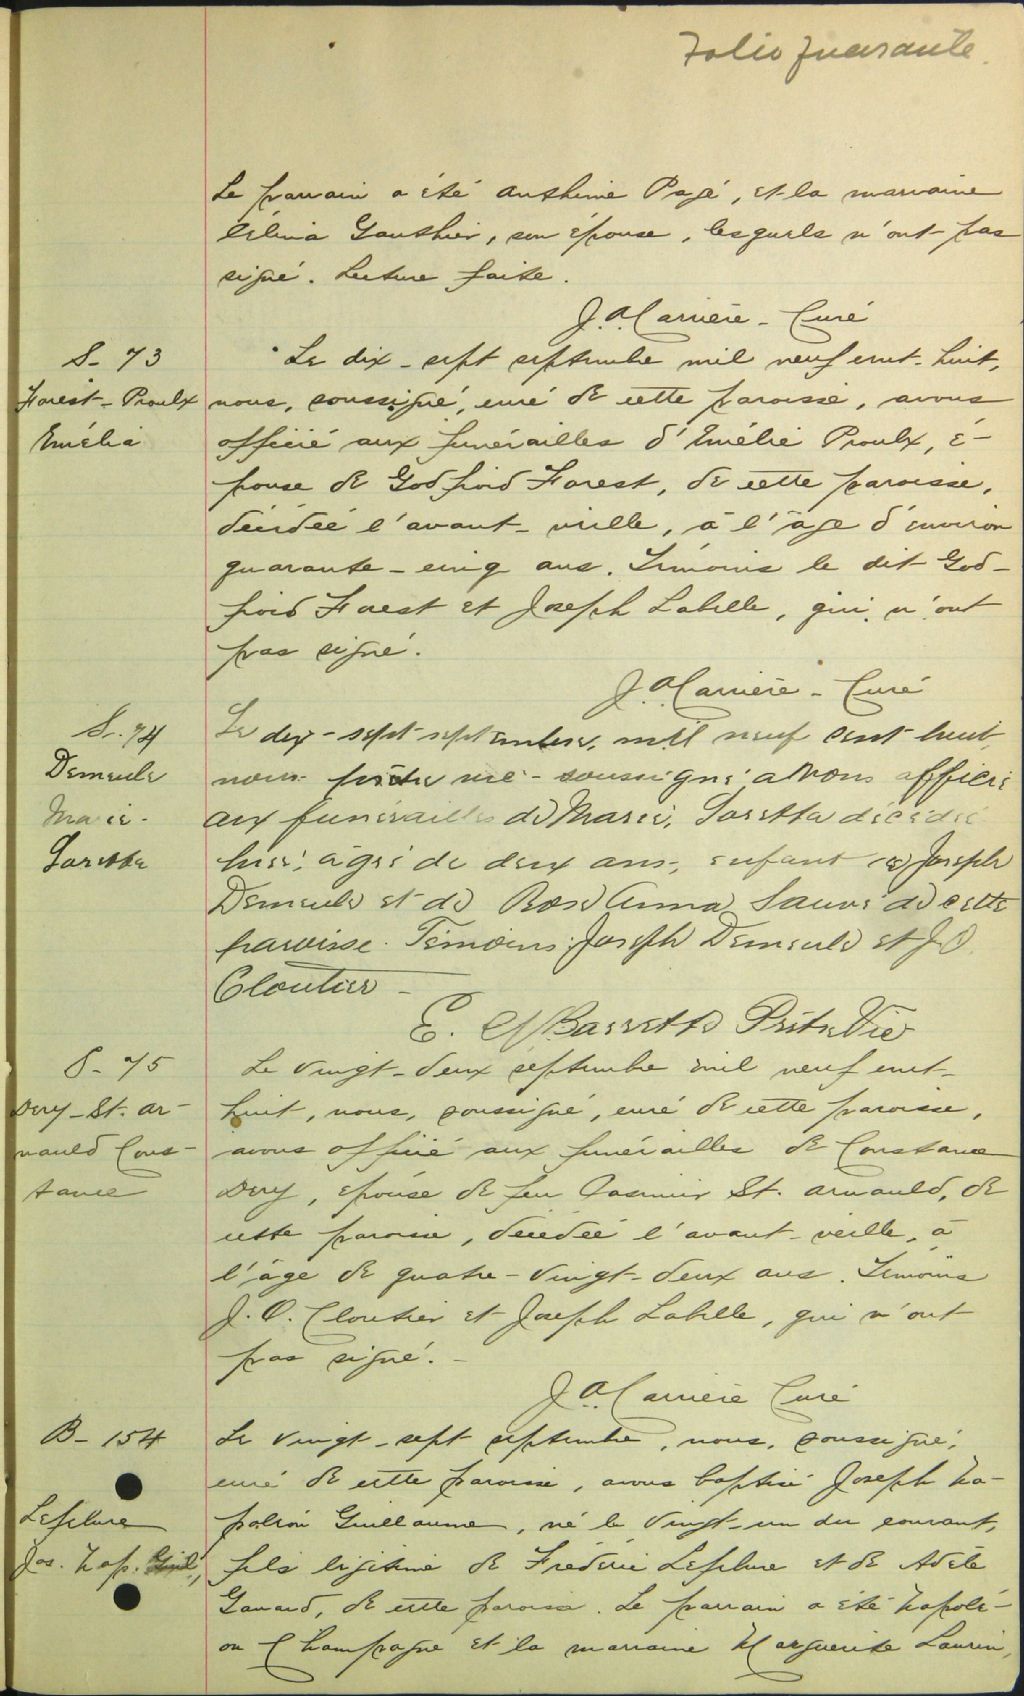 Folio quarante.
Le parrain a été Anthime Pagé, et la marraine
Célina Gauthier, son épouse, lesquels n'ont pas
signé. Lecture faite.
J. A. Carrière - Curé
S- 73
Forest-Proulx
Emélie
Le dix-sept septembre mil neuf cent-huit,
nous, soussigné, curé de cette paroisse, avons
officié aux funérailles d'Emélie Proulx, é-
pouse de Godfroid Forest, de cette paroisse,
décédée l'avant-veille, à l'âge d'environ
quarante-cinq ans. Témoins le dit God-
froid Forest et Joseph Labelle, qui n'ont
pas signé.
J. A. Carrière - Curé
S- 74
Demeule
Marie-
Loretta
Le dix-sept septembre, mil neuf cent huit,
nous prêtre vic- soussigné avons officié
aux funérailles de Marie, Loretta décédée
hier, âgée de deux ans, enfant de Joseph
Demeule et de Rose Anna Sauvé de cette
paroisse. Témoins: Joseph Demeule et J. O.
Cloutier -
E. Barrette Prêtre Vic
S- 75
Dery-St. Ar-
nauld Cons-
tance
Le vingt-deux septembre mil neuf cent-
huit, nous, soussigné, curé de cette paroisse,
avons officié aux funérailles de Constance
Dery, épouse de feu Casimir St. Arnauld, de
cette paroisse, décédée l'avant-veille, à
l'âge de quatre-vingt-deux ans. Témoins
J. O. Cloutier et Joseph Labelle, qui n'ont
pas signé. -
J. A. Carrière Curé
B- 154
Lefebvre
Jos. Nap. Guil.,
Le vingt-sept septembre, nous, soussigné,
curé de cette paroisse, avons baptisé Joseph Na-
poléon Guillaume, né le vingt-un du courant,
fils légitime de Frédéric Lefebvre et de Adèle
Gavard, de cette paroisse. Le parrain a été Napolé-
on Champagne et la marraine Marguerite Laurin,